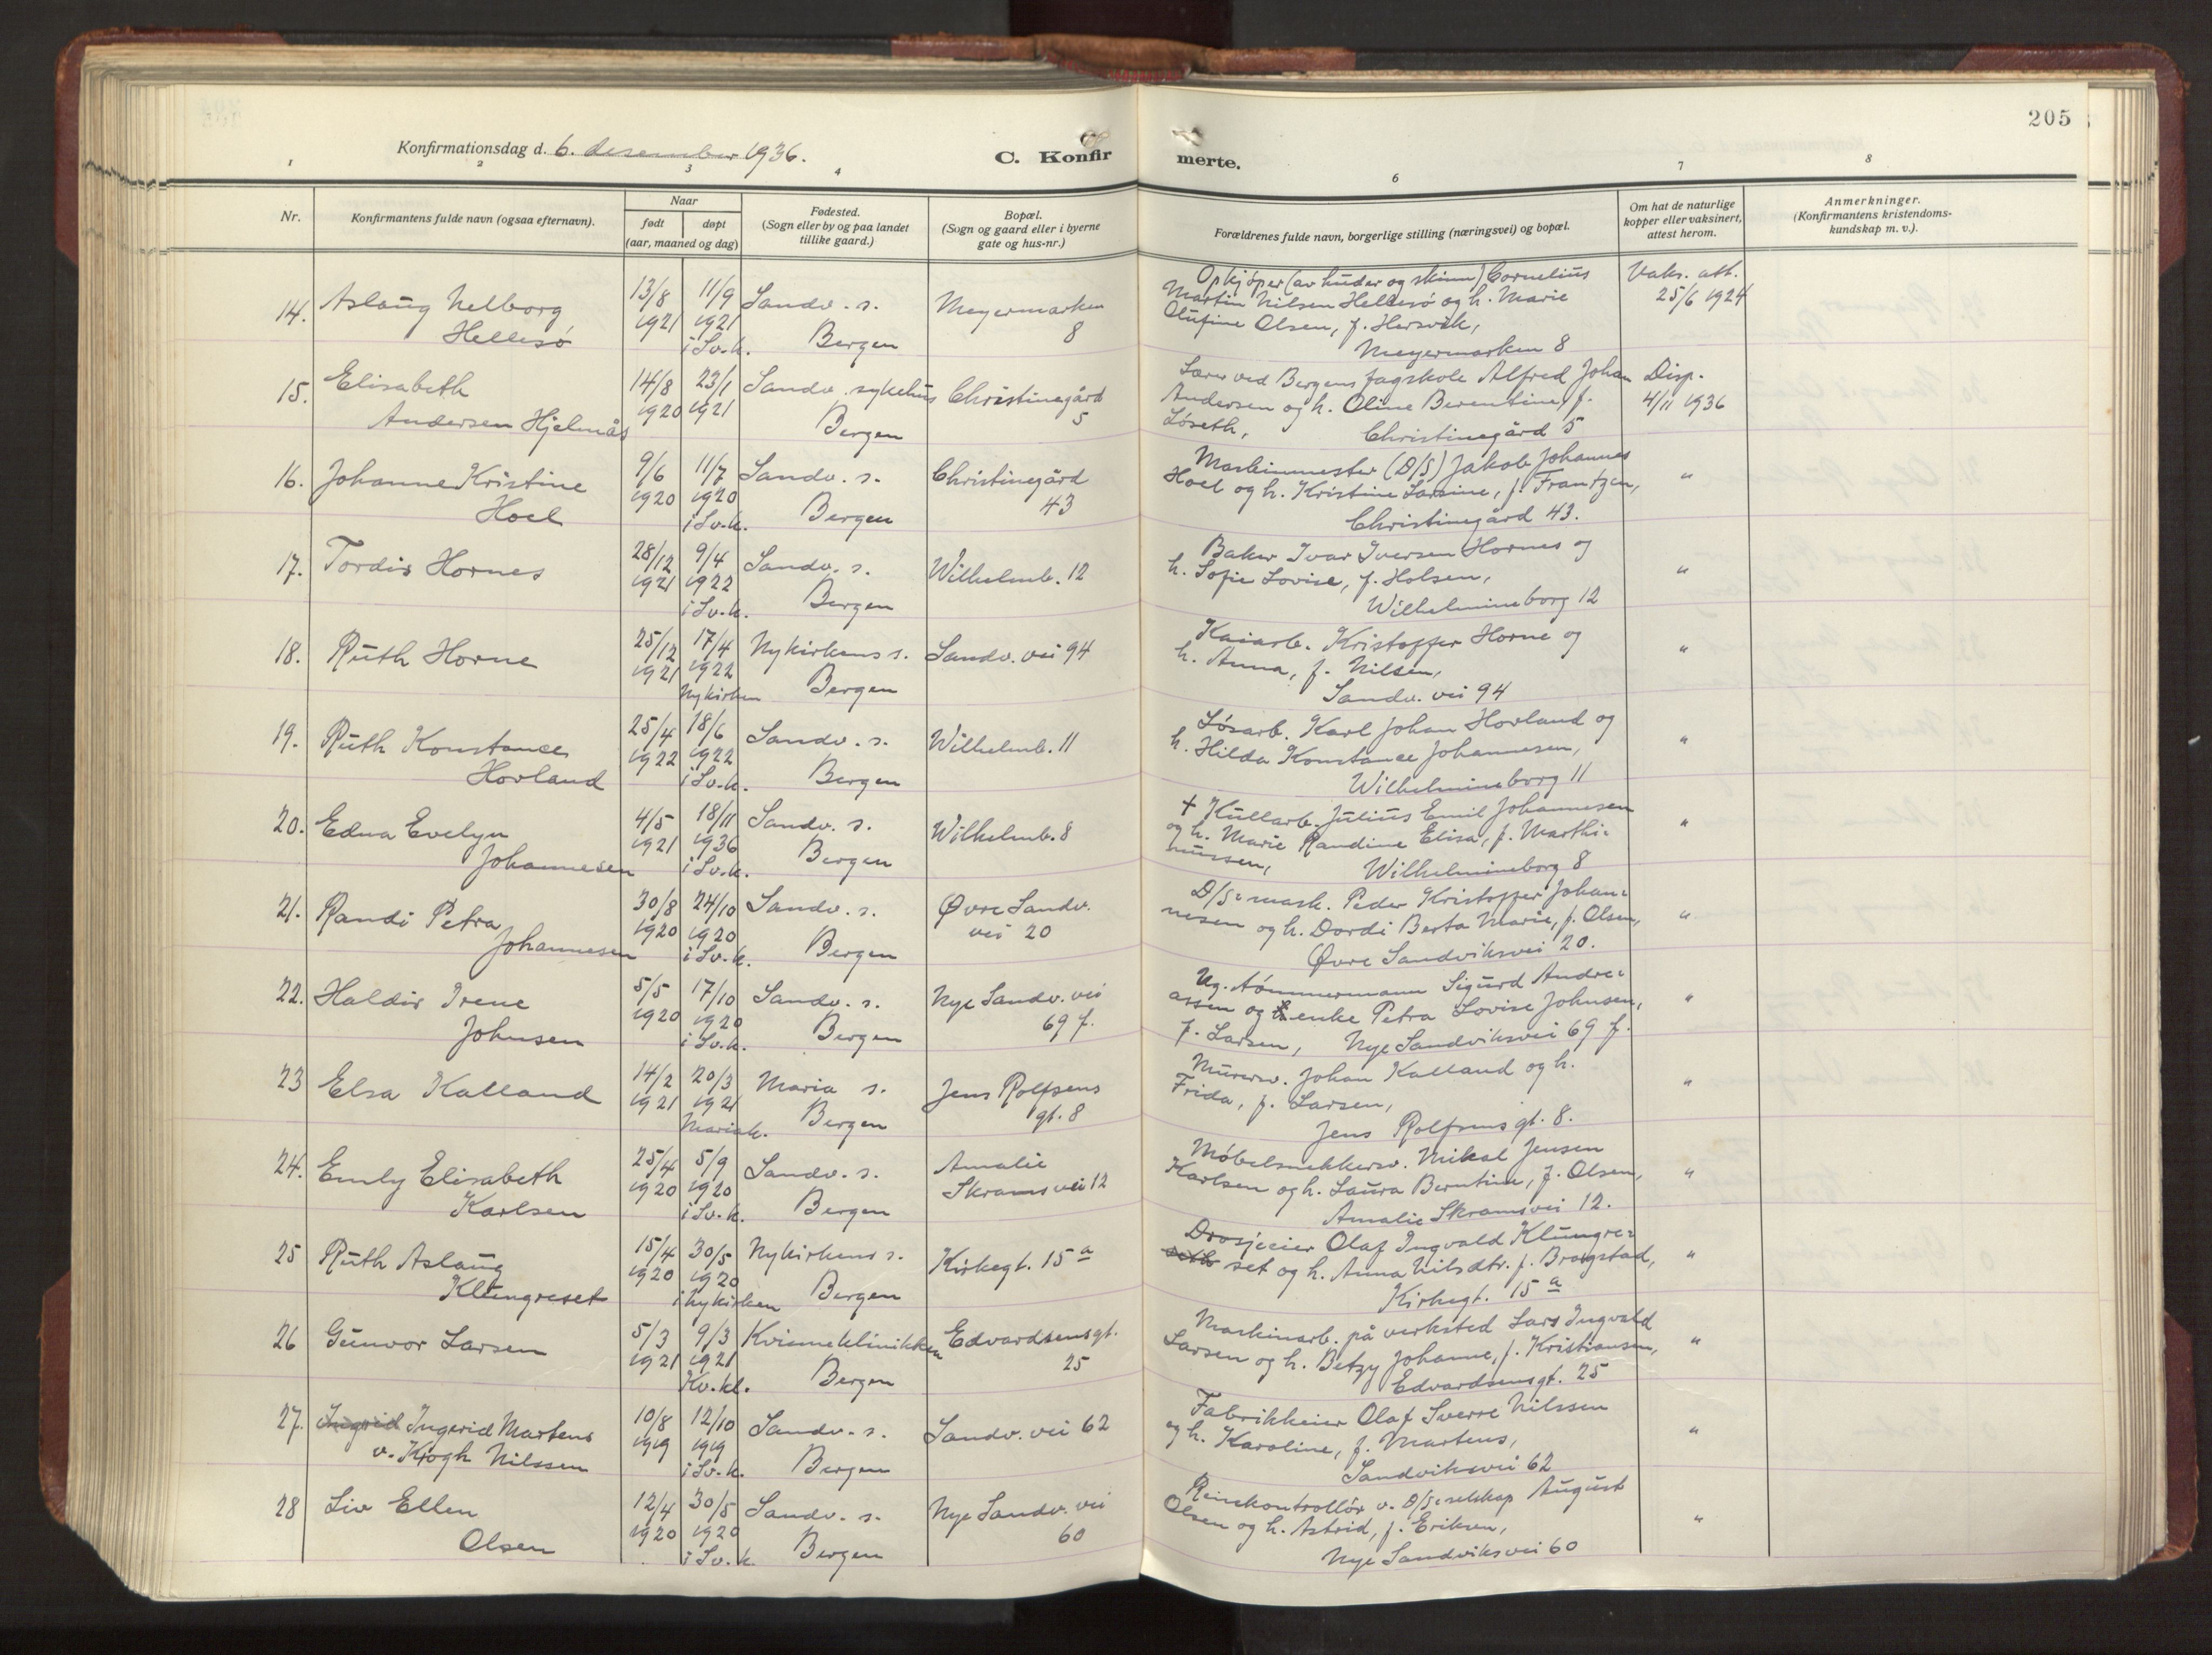 205
Konfirmationsdag d. 6. desember 1936.
C. Konfirmerte.
1 2 3 4 6 7 8
Nr.
Konfirmantens fulde navn (ogsaa efternavn).
Naar
født
døpt
(aar, maaned og dag)
Fødested.
(Sogn eller by og paa landet
tillike gaard.)
Bopæl.
(Sogn og gaard eller i byerne
gate og hus-nr.)
Forældrenes fulde navn, borgerlige stilling (næringsvei) og bopæl.
Om hat de naturlige
kopper eller vaksinert,
attest herom.
Anmerkninger.
(Konfirmantens kristendoms-
kundskap m. v.).
14. Aslaug Nelborg
Hellesø
13/8
1921
11/9
1921
i Sv.k.
Sandv. s.
Bergen
Meyermarken
8
Opkjøper (av huder og skinn) Cornelius
Martin Nilsen Hellesø og h. Marie
Olufine Olsen, f. Hersvik,
Meyermarken 8
Vaks. att.
25/6 1924
15. Elisabeth
Andersen Hjelmås
14/8
1920
23/1
1921
Sandv. sykehus
Bergen
Christinegård
5
Lærer ved Bergens fagskole Alfred Johan
Andersen og h. Oline Berentine, f.
Løseth,
Christinegård 5
Disp.
4/11 1936
16. Johanne Kristine
Hoel
9/6
1920
11/7
1920
i Sv.k.
Sandv. s.
Bergen
Christinegård
43
Maskinmester (D/S) Jakob Johannes
Hoel og h. Kristine Larsine, f. Frantzen,
Christinegård 43.
"
17. Tordis Hornes
28/12
1921
9/4
1922
i Sv.k.
Sandv. s.
Bergen
Wilhelmb. 12
Baker Ivar Iversen Hornes og
h. Sofie Lovise, f. Holsen,
Wilhelmineborg 12
"
18. Ruth Horne
25/12
1921
17/4
1922
Nykirken
Nykirkens s.
Bergen
Sandv. vei 94
Kaiarb. Kristoffer Horne og
h. Anna, f. Nilsen,
Sandv. vei 94
"
19. Ruth Konstance
Hovland
25/4
1922
18/6
1922
i Sv.k.
Sandv. s.
Bergen
Wilhelmb. 11
Løsarb. Karl Johan Hovland og
h. Hilda Konstance Johannesen,
Wilhelmineborg 11
"
20. Edna Evelyn
Johannesen
4/5
1921
18/11
1936
i Sv.k.
Sandv. s.
Bergen
Wilhelmb. 8
+ Kullarb. Julius Emil Johannesen
og h. Marie Randine Elisa, f. Marthi-
nussen,
Wilhelmineborg 8
"
21. Randi Petra
Johannesen
30/8
1920
24/10
1920
i Sv.k.
Sandv. s.
Bergen
Øvre Sandv.
vei 20
D/S-mask. Peder Kristoffer Johan-
nesen og h. Dordi Berta Marie, f. Olsen,
Øvre Sandviksvei 20.
"
22. Haldis Irene
Johnsen
5/5
1920
17/10
1920
i Sv.k.
Sandv. s.
Bergen
Nye Sandv. vei
69 f.
Ug. tømmermann Sigurd Andre-
assen og enke Petra Lovise Johnsen,
f. Larsen, Nye Sandviksvei 69 f.
"
23 Elsa Kalland
14/2
1921
20/3
1921
Mariak.
Maria s.
Bergen
Jens Rolfsens
gt. 8
Murersv. Johan Kalland og h.
Frida, f. Larsen,
Jens Rolfsens gt. 8.
"
24. Emly Elisabeth
Karlsen
25/4
1920
5/9
1920
i Sv.k.
Sandv. s.
Bergen
Amalie
Skrams vei 12
Møbelsnekkersv. Mikal Jensen
Karlsen og h. Laura Berntine, f. Olsen,
Amalie Skramsvei 12.
"
25 Ruth Aslaug
Klungreset
15/4
1920
30/5
1920
i Nykirken
Nykirkens s.
Bergen
Kirkegt. 15 a
Drosjeeier Olaf Ingvald Klungre-
set og h. Anna Nilsdtr. f. Brogstad,
Kirkegt. 15 a
"
26 Gunvor Larsen
5/3
1921
9/3
1921
Kv.kl.
Kvinneklinikken
Bergen
Edvardsensgt.
25
Maskinarb. på verksted Lars Ingvald
Larsen og h. Betzy Johanne, f. Kristiansen,
Edvardsensgt. 25
"
27. Ingrid Ingerid Martens
v. Krogh Nilssen
10/8
1919
12/10
1919
i Sv.k.
Sandv. s.
Bergen
Sandv. vei 62
Fabrikkeier Olaf Sverre Nilssen
og h. Karoline, f. Martens,
Sandviksvei 62
"
28 Liv Ellen
Olsen
12/4
1920
30/5
1920
i Sv.k.
Sandv. s.
Bergen
Nye Sandv. vei
60
Reisekontrollør v. D/S-selskap August
Olsen og h. Astrid, f. Eriksen,
Nye Sandviksvei 60
"